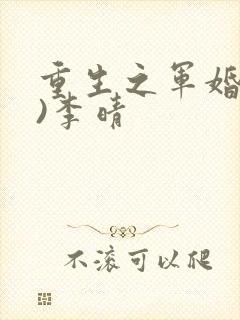 重生之军婚
)李晴
不滚可以爬